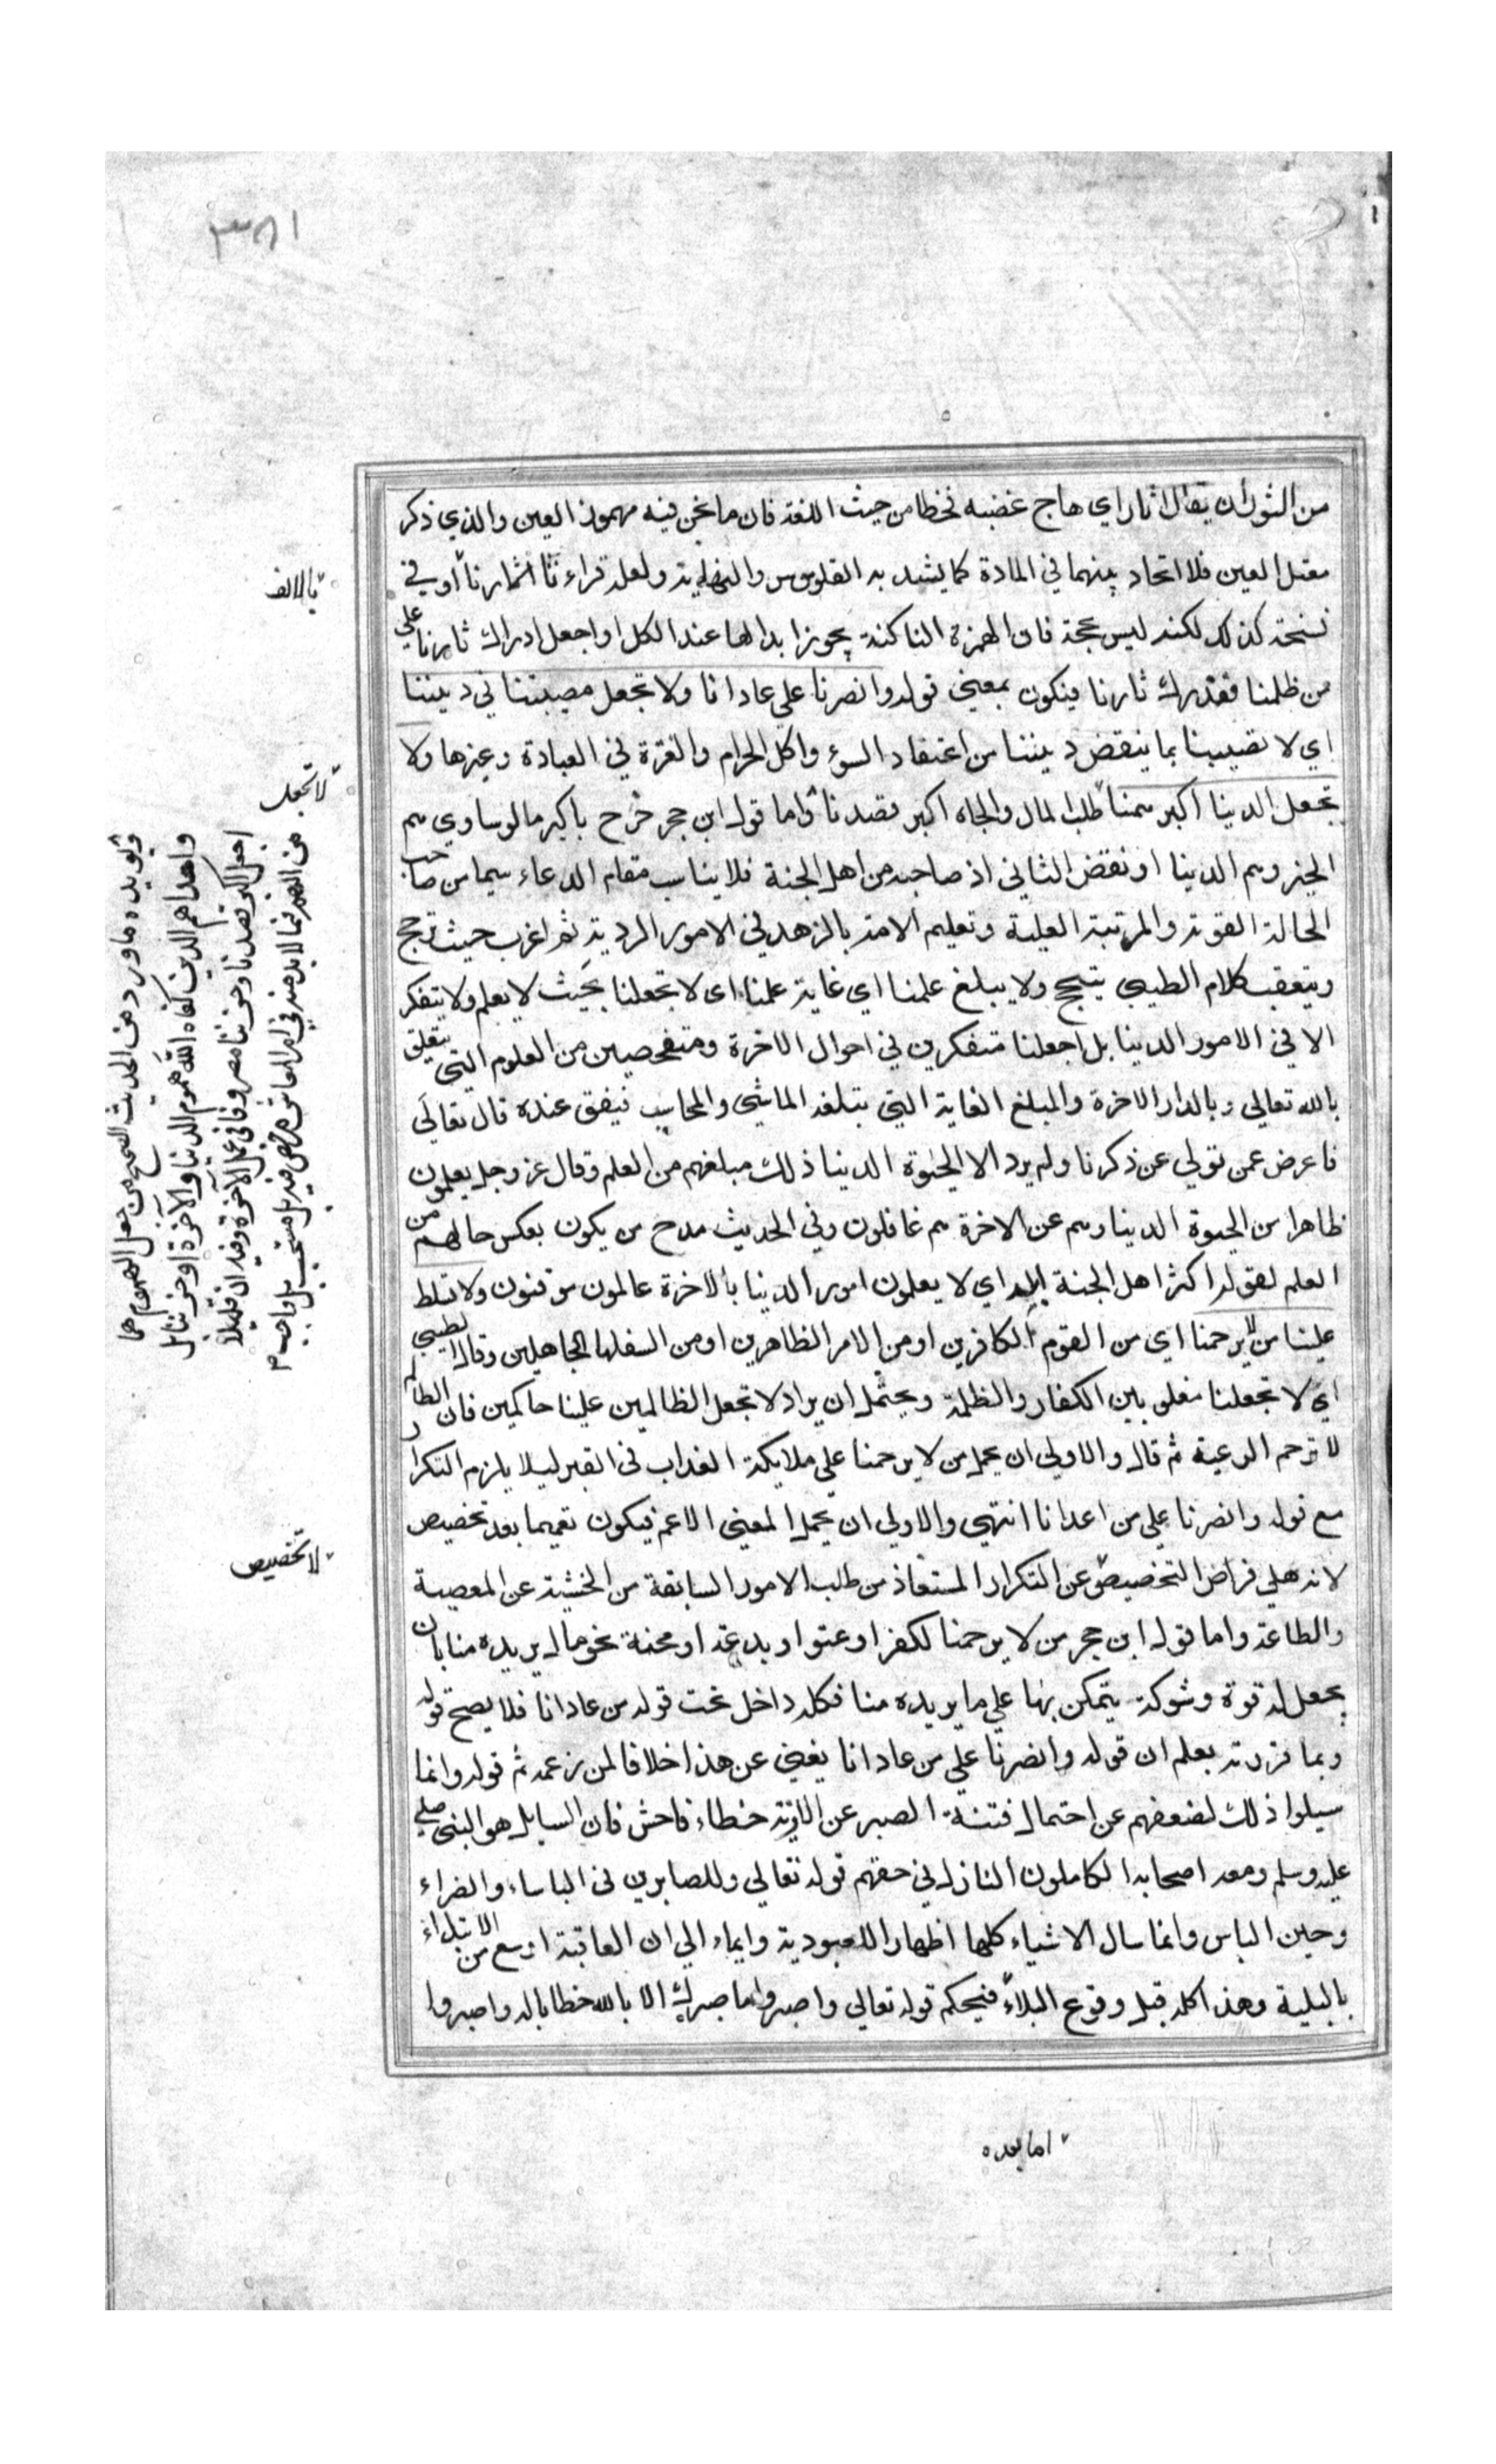 ٣٨١
من الثوران يقال ثار اي هاج غضبه فخطا من حيث اللغة فان ما نحن فيه مهموز العين والذي ذكر
معتل العين فلا اتحاد بينهما في المادة كما يشهد به القاموس والنهاية ولعله قراء ثا ثارنا او في
نسخة كذلك لكنه ليس حجة فان الهمزة الساكنة يجوز ابدالها عند الكل او اجعل ادراك ثارنا علي
من ظلمنا فندرك ثارنا فيكون بمعني قوله وانصرنا علي عادانا ولا تجعل مصيبتنا في ديننا
اي لا تصيبنا بما ينقض ديننا من اعتقاد السوء واكل الحرام والفترة في العبادة وغيرها ولا
تجعل الدينا اكبر همنا طلب المال والجاه اكبر قصدنا واما قول ابن حجر خرج باكبر ما لو ساوي هم
الخير وهم الدينا او نقض الثاني اذ صاحبه من اهل الجنة فلا يناسب مقام الدعاء سيما من صاحب
الحالة القوية والمرتبة العلية وتعليم الامة بالزهد في الامور الردية ثم اغرب حيث ترجح
وتعقب كلام الطيبي بتبجح ولا يبلغ علمنا اي غاية علمنا اي لا تجعلنا بحيث لا يعلم ولا يتفكر
الا في الامور الدينا بل اجعلنا متفكرين في احوال الاخرة ومتفحصين من العلوم التي يتعلق
بالله تعالي وبالدار الاخرة والمبلغ الغاية التي يبلغه الماشي والمحاسب فيقف عنده قال تعالي
فاعرض عمن تولي عن ذكرنا ولم يرد الا الحيوة الدينا ذلك مبلغهم من العلم وقال عز وجل يعلمون
ظاهرا من الحيوة الدينا وهم عن الاخرة هم غافلون وفي الحديث مدح من يكون بعكس حالهم من
العلم لقوله اكثر اهل الجنة البله اي لا يعلمون امور الدينا بالاخرة عالمون موقنون ولا تسلط
علينا من لا يرحمنا اي من القوم الكافرين او من الامر الظاهرين او من السفلها الجاهلين وقال الطيبي
اي لا تجعلنا مغلوبين الكفار والظلمة ويحتمل ان يراد لا تجعل الظالمين علينا حاكمين فان الظالم
لا ترحم الرعية ثم قال والاولي ان يحمل من لا يرحمنا علي ملايكة العذاب في القبر ليلا يلزم التكرار
مع قوله وانصرنا علي من اعدانا انتهي والاولي ان يحمل المعني الاعم فيكون تعميما بعد تخصيص
لانه علي فراض التخصيص عن التكرار المستفاذ من طلب الامور السابقة من الخشية عن المعصية
والطاعة واما قول ابن حجر من لا يرحمنا لكفر او عتو او بدعة او محنة نحو مال يريده منا بان
يجعل له قوة وشوكة يتمكن بها علي ما يريده منا فكله داخل تحت قوله من عادانا فلا يصح قوله
وبما قررته يعلم ان قوله وانصرنا علي من عادانا يغني عن هذا خلافا لمن زعمه ثم قوله وانما
سيلوا ذلك لضعفهم عن احتمال فتنة الصبر عن الاذية خطاء فاحش فان السايل هو النبي صلي
عليه وسلم ومعه اصحابه الكاملون النازل في حقهم قوله تعالي وللصابرين في الباساء والضراء
وحين الباس وانما سال الاشياء كلها اظهار اللعبودية وايماء الي ان العاقبة اوسع من الابتلاء
بالبلية وهذا كله قبل وقوع البلاء فيحكم قوله تعالي واصبر وما صبرك الا بالله خطابا له واصبروا
بالالف
لا تجعل
من الهم فيما لا بد منه في امر المعاش مرخص فيه بل مستحب بل واجب ٢
اجعل اكبر قصدنا وحزننا مصروفا في عمل الآخرة وفيه ان قليلا
واحدا هم الدين كفاه الله هموم الدنيا والآخرة او حزننا بل
ويؤيده ما ورد من الحديث الصحيح من جعل الهموم هما
لا تخصيص
اما بعده